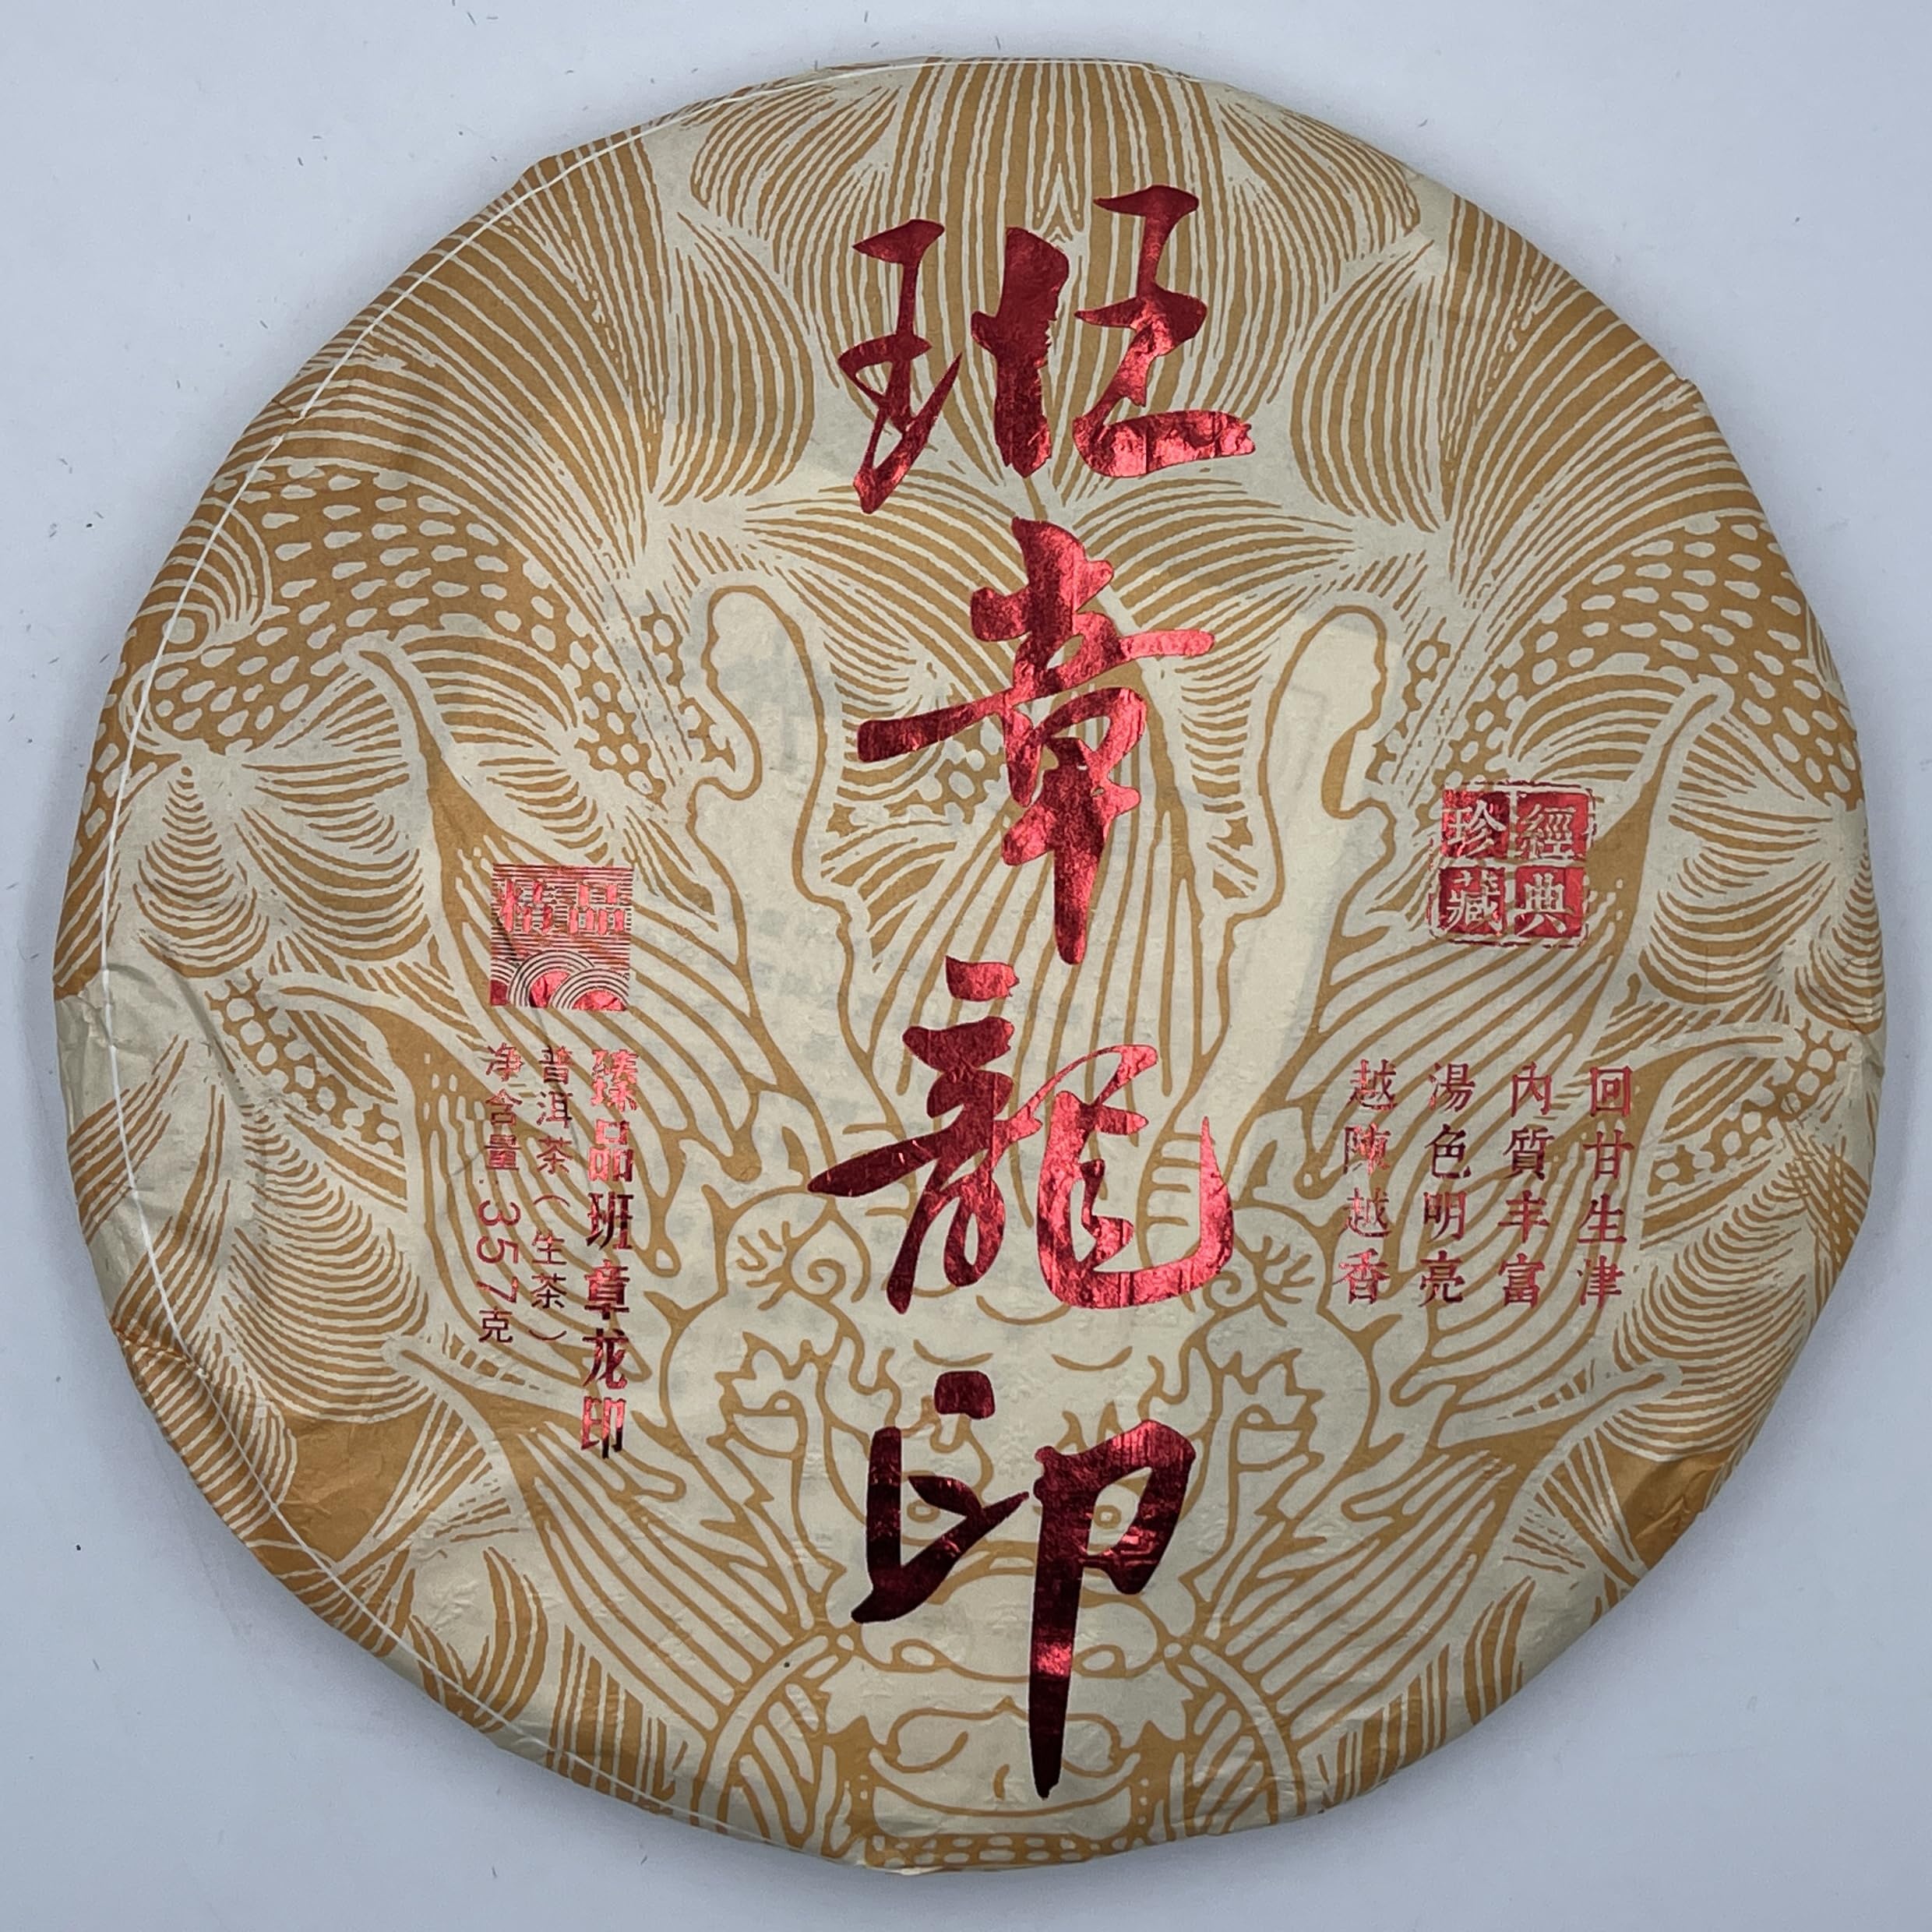 班章龍印
經典
珍藏
回甘生津
內質丰富
湯色明亮
越陳越香
精品
臻品班章龙印
普洱茶（生茶）
净含量:357克